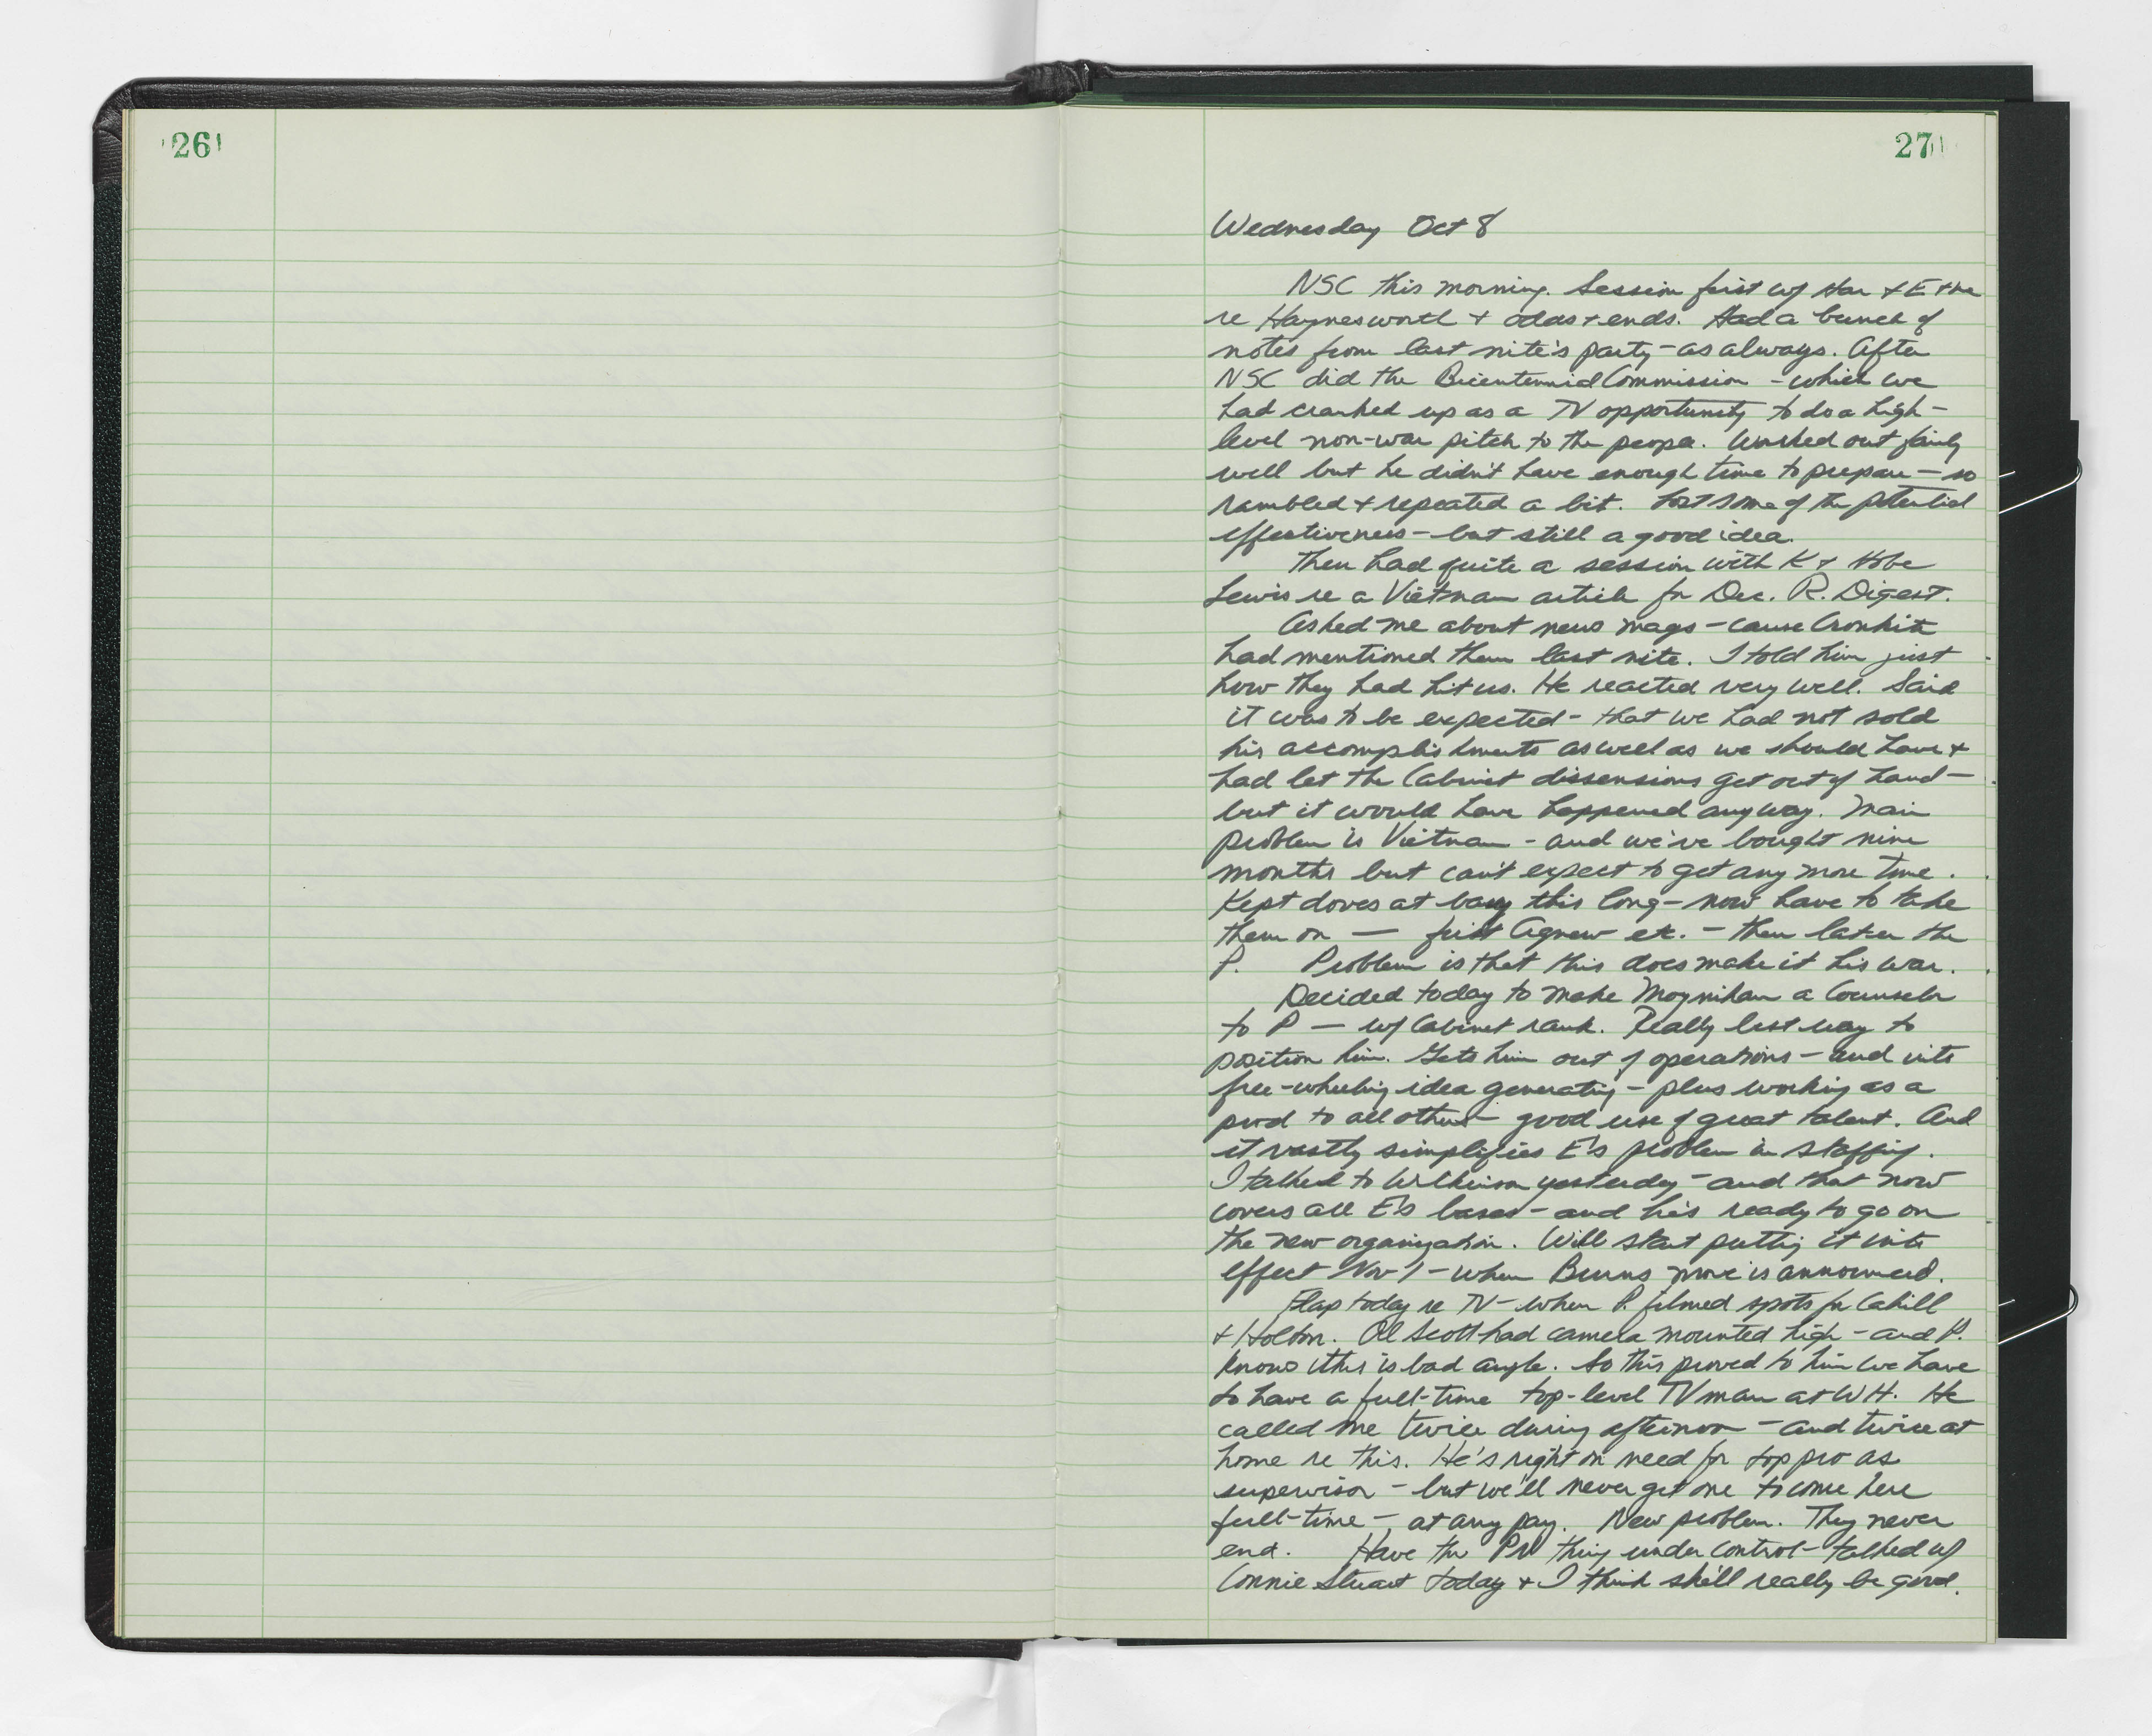 26
27
Wednesday Oct 8
NSC this morning. Session first w/ Har + E + me
re Haynesworth + odds + ends. Had a bunch of
notes from last nite's party - as always. After
NSC did the Bicentennial Commission - which we
had cranked up as a TV opportunity to do a high-
level non-war pitch to the people. Worked out fairly
well but he didn't have enough time to prepare - so
rambled + repeated a bit. Lost some of the potential
effectiveness - but still a good idea.
Then had quite a session with K + Hobe
Lewis re a Vietnam article for Dec. R. Digest.
Asked me about news mags - cause Cronkite
had mentioned them last nite. I told him just
how they had hit us. He reacted very well. Said
it was to be expected - that we had not sold
his accomplishments as well as we should have +
had let the Cabinet dissensions get out of hand -
but it would have happened anyway. Main
problem is Vietnam - and we've bought nine
months but can't expect to get any more time.
Kept doves at bay this long - now have to take
them on — first Agnew etc. - then later the
P. Problem is that this does make it his war.
Decided today to make Moynihan a Counselor
to P — w/ Cabinet rank. Really best way to
position him. Gets him out of operations - and into
free-wheeling idea generating - plus working as a
prod to all others - good use of great talent. And
it vastly simplifies E's problem in staffing.
I talked to Wilkinson yesterday - and that now
covers all E's bases - and he's ready to go on
the new organization. Will start putting it into
effect Nov 1 - when Burns move is announced.
Flap today re TV - when P. filmed spots for Cahill
+ Holton. Al Scott had camera mounted high - and P.
knows this is bad angle. So this proved to him we have
to have a full-time top-level TV man at WH. He
called me twice during afternoon - and twice at
home re this. He's right on need for top pro as
supervisor - but we'll never get one to come here
full-time - at any pay. New problem. They never
end. Have the PN thing under control - talked w/
Connie Stuart today + I think she'll really be good.